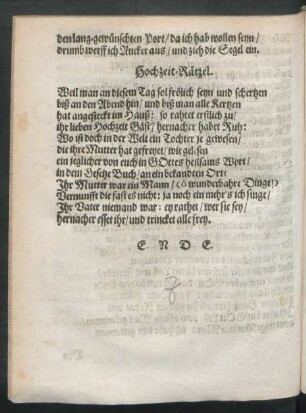 den lang-gewünschten Port/ da ich hab wollen seyn/
drumb werff ich Ancker aus/ und zieh die Segel ein.
Hochzeit-Rätzel.
Weil man an diesem Tag sol frölich seyn und schertzen
biß an den Abend hin/ und biß man alle Kertzen
hat angesteckt im Hauß: so rahtet erstlich zu/
ihr lieben Hochzeit Gäst/ hernacher habet Ruh:
Wo ist doch in der Welt ein Tochter je gewesen/
die ihre Mutter hat gefreyet/ wie gelesen
ein jeglicher von euch in GOttes heilsams Wort/
in dem Gesetze Buch/ an ein bekandten Ort:
Ihr Mutter war ein Mann/ (ô wunderbahre Dinge!)
Vernunfft die fast es nicht: ja noch ein mehr's ich singe/
Ihr Vater niemand war: ey rathet/ wer sie sey/
hernacher esset ihr/ und trincket alle frey.
E N D E.